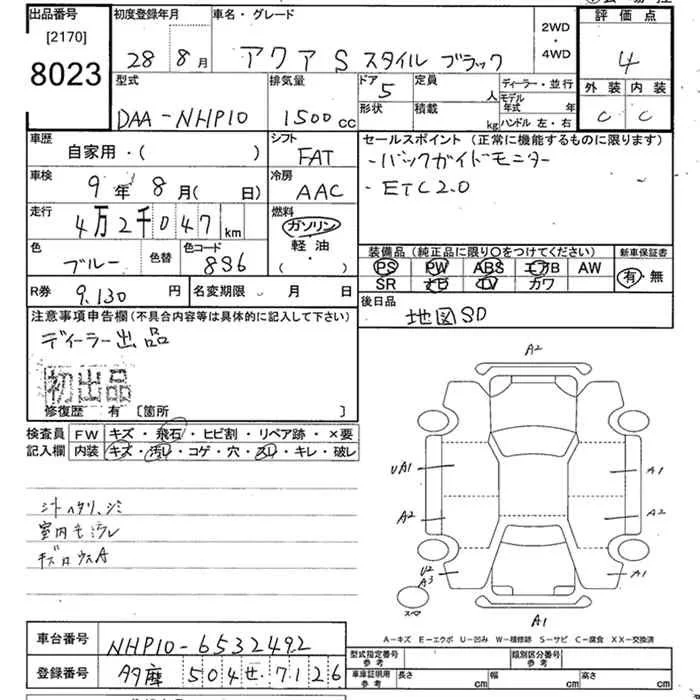 出品番号
[2170]
8023
初度登録年月
28年 8月
車名・グレード
アクア S スタイル ブラック
2WD
・
4WD
評価点
4
外装 内装
C C
型式
DAA-NHP10
排気量
1500 cc
ドア
5
定員
人
形状
積載
kg
ディーラー・並行
モデル年式 年
ハンドル 左・右
車歴
自家用・( )
シフト
FAT
車検
9年 8月( 日)
冷房
AAC
走行
4万2千047 km
燃料
ガソリン
軽油
( ・ )
色
ブルー
色替
色コード
8S6
セールスポイント (正常に機能するものに限ります)
・バックガイドモニター
・ETC2.0
装備品 (純正品に限り〇をつけてください)
PS PW ABS エアB AW
SR ナビ TV カワ
新車保証書
有・無
R券 9.130 円
名変期限 月 日
後日品
地図SD
注意事項申告欄 (不具合内容等は具体的に記入して下さい)
ディーラー出品
初出品
修復歴 有 [箇所 ]
検査員 FW キズ・飛石・ヒビ割・リペア跡・×要
記入欄 内装 キズ・汚レ・コゲ・穴・スレ・キレ・破レ
シートヘタリ、シミ
室内モ汚レ
A2
UA1
A1
A2
A2
U2
A3
A1
スペア
A1
A-キズ E-エクボ U-凹み W-補修跡 S-サビ C-腐食 XX-交換済
車台番号 NHP10-6532492
登録番号 504 せ 7126
型式指定番号 参考
類別区分番号 参考
車庫証明用 参考 長さ cm 幅 cm 高さ cm